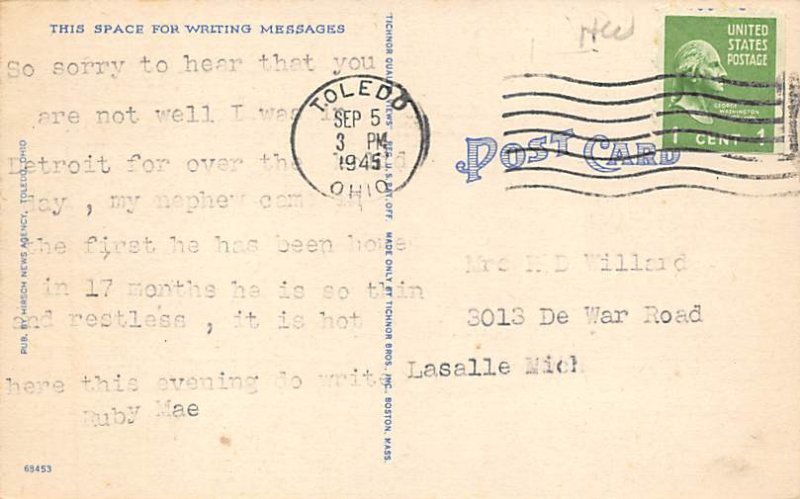 THIS SPACE FOR WRITING MESSAGES
So sorry to hear that you
are not well I was in
Detroit for over the
day , my nephew came
the first he has been home
in 17 months he is so thin
and restless , it is hot
here this evening do write
Ruby Mae
68453
PUB. BY HIRSCH NEWS AGENCY, TOLEDO, OHIO
"TICHNOR QUALITY VIEWS" REG. U.S. PAT. OFF. MADE ONLY BY TICHNOR BROS., INC., BOSTON, MASS.
TOLEDO
SEP 5
3 PM
1945
OHIO
UNITED
STATES
POSTAGE
GEORGE
WASHINGTON
1 CENT 1
POST CARD
Mrs D Willard
3013 De War Road
Lasalle Mich